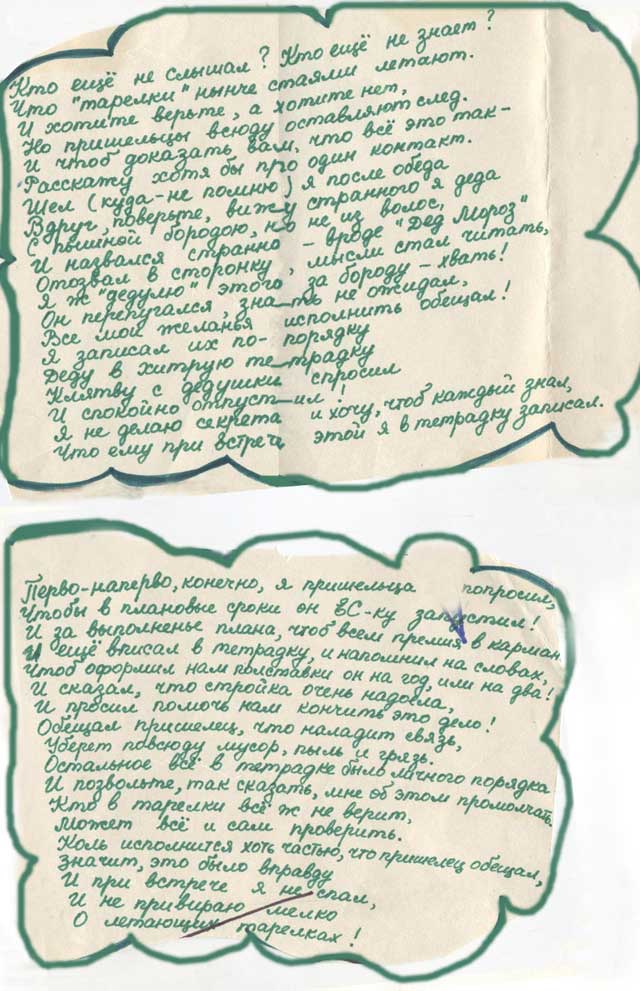 Кто ещё не слышал? Кто ещё не знает?
Что "тарелки" нынче стаями летают.
И хотите верьте, а хотите нет,
Но пришельцы всюду оставляют след.
И чтоб доказать вам, что всё это так-
Расскажу хотя бы про один контакт.
Шел (куда-не помню) я после обеда
Вдруг, поверьте, вижу странного я деда
С пышной бородою, но не из волос,
И назвался странно - вроде "Дед Мороз"
Отозвал в сторонку, мысли стал читать,
Я ж "дедулю" этого за бороду - хвать!
Он перепугался, знать не ожидал,
Все мои желанья исполнить обещал!
Я записал их по-порядку
Деду в хитрую тетрадку
Клятву с дедушки спросил
И спокойно отпустил!
Я не делаю секрета и хочу, чтоб каждый знал,
Что ему при встрече этой я в тетрадку записал.
Перво-наперво, конечно, я пришельца попросил,
Чтобы в плановые сроки он ЕС-ку запустил!
И за выполненье плана, чтоб всем премия в карман
И ещё вписал в тетрадку, и напомнил на словах,
Чтоб оформил нам полставки он на год, или на два!
И сказал, что стройка очень надоела,
И просил помочь нам кончить это дело!
Обещал пришелец, что наладит связь,
Уберет повсюду мусор, пыль и грязь.
Остальное всё в тетрадке было личного порядка
И позвольте, так сказать, мне об этом промолчать.
Кто в тарелки всё ж не верит,
Может всё и сам проверить.
Коль исполнится хоть частью, что пришелец обещал,
Значит, это было вправду
И при встрече я не спал,
И не привираю мелко
О летающих тарелках!